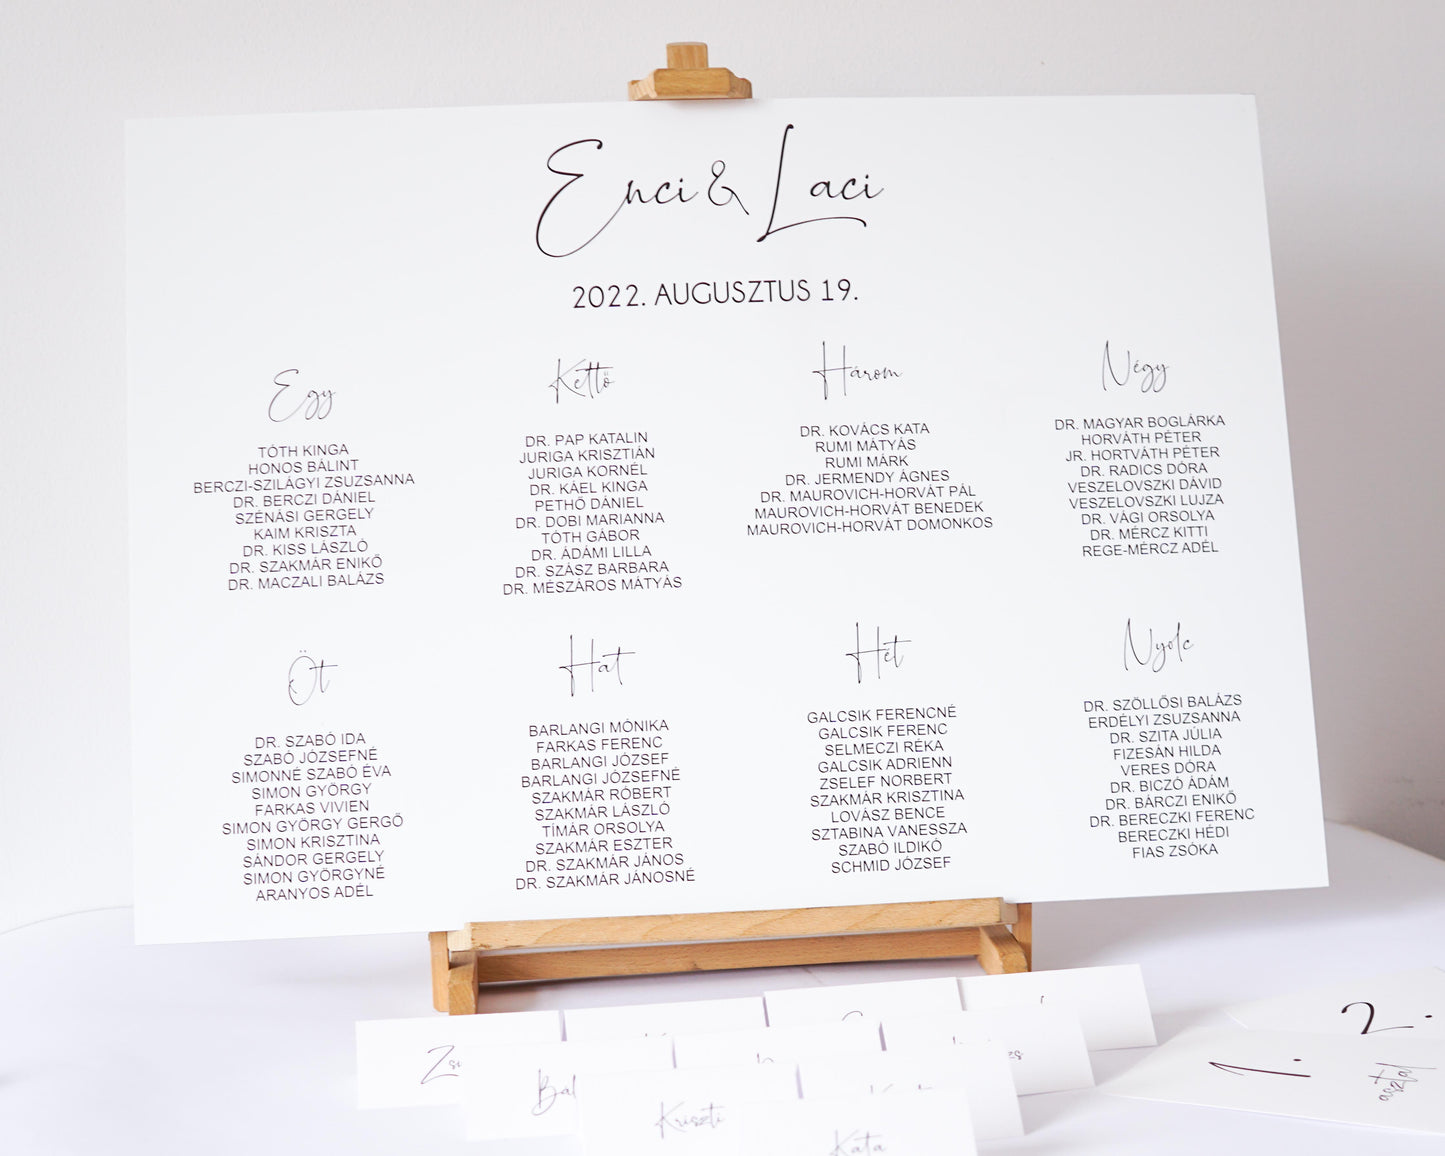 Enci & Laci
2022. AUGUSZTUS 19.
Egy
TÓTH KINGA
HONOS BÁLINT
BERCZI-SZILÁGYI ZSUZSANNA
DR. BERCZI DÁNIEL
SZÉNÁSI GERGELY
KAIM KRISZTA
DR. KISS LÁSZLÓ
DR. SZAKMÁR ENIKŐ
DR. MACZALI BALÁZS
Kettő
DR. PAP KATALIN
JURIGA KRISZTIÁN
JURIGA KORNÉL
DR. KÁEL KINGA
PETHŐ DÁNIEL
DR. DOBI MARIANNA
TÓTH GÁBOR
DR. ÁDÁMI LILLA
DR. SZÁSZ BARBARA
DR. MÉSZÁROS MÁTYÁS
Három
DR. KOVÁCS KATA
RUMI MÁTYÁS
RUMI MÁRK
DR. JERMENDY ÁGNES
DR. MAUROVICH-HORVÁT PÁL
MAUROVICH-HORVÁT BENEDEK
MAUROVICH-HORVÁT DOMONKOS
Négy
DR. MAGYAR BOGLÁRKA
HORVÁTH PÉTER
JR. HORTVÁTH PÉTER
DR. RADICS DÓRA
VESZELOVSZKI DÁVID
VESZELOVSZKI LUJZA
DR. VÁGI ORSOLYA
DR. MÉRCZ KITTI
REGE-MÉRCZ ADÉL
Öt
DR. SZABÓ IDA
SZABÓ JÓZSEFNÉ
SIMONNÉ SZABÓ ÉVA
SIMON GYÖRGY
FARKAS VIVIEN
SIMON GYÖRGY GERGŐ
SIMON KRISZTINA
SÁNDOR GERGELY
SIMON GYÖRGYNÉ
ARANYOS ADÉL
Hat
BARLANGI MÓNIKA
FARKAS FERENC
BARLANGI JÓZSEF
BARLANGI JÓZSEFNÉ
SZAKMÁR RÓBERT
SZAKMÁR LÁSZLÓ
TÍMÁR ORSOLYA
SZAKMÁR ESZTER
DR. SZAKMÁR JÁNOS
DR. SZAKMÁR JÁNOSNÉ
Hét
GALCSIK FERENCNÉ
GALCSIK FERENC
SELMECZI RÉKA
GALCSIK ADRIENN
ZSELEF NORBERT
SZAKMÁR KRISZTINA
LOVÁSZ BENCE
SZTABINA VANESSZA
SZABÓ ILDIKÓ
SCHMID JÓZSEF
Nyolc
DR. SZÖLLŐSI BALÁZS
ERDÉLYI ZSUZSANNA
DR. SZITA JÚLIA
FIZESÁN HILDA
VERES DÓRA
DR. BICZÓ ÁDÁM
DR. BÁRCZI ENIKŐ
DR. BERECZKI FERENC
BERECZKI HÉDI
FIAS ZSÓKA
2.
1.
asztal
Kriszti
Kata